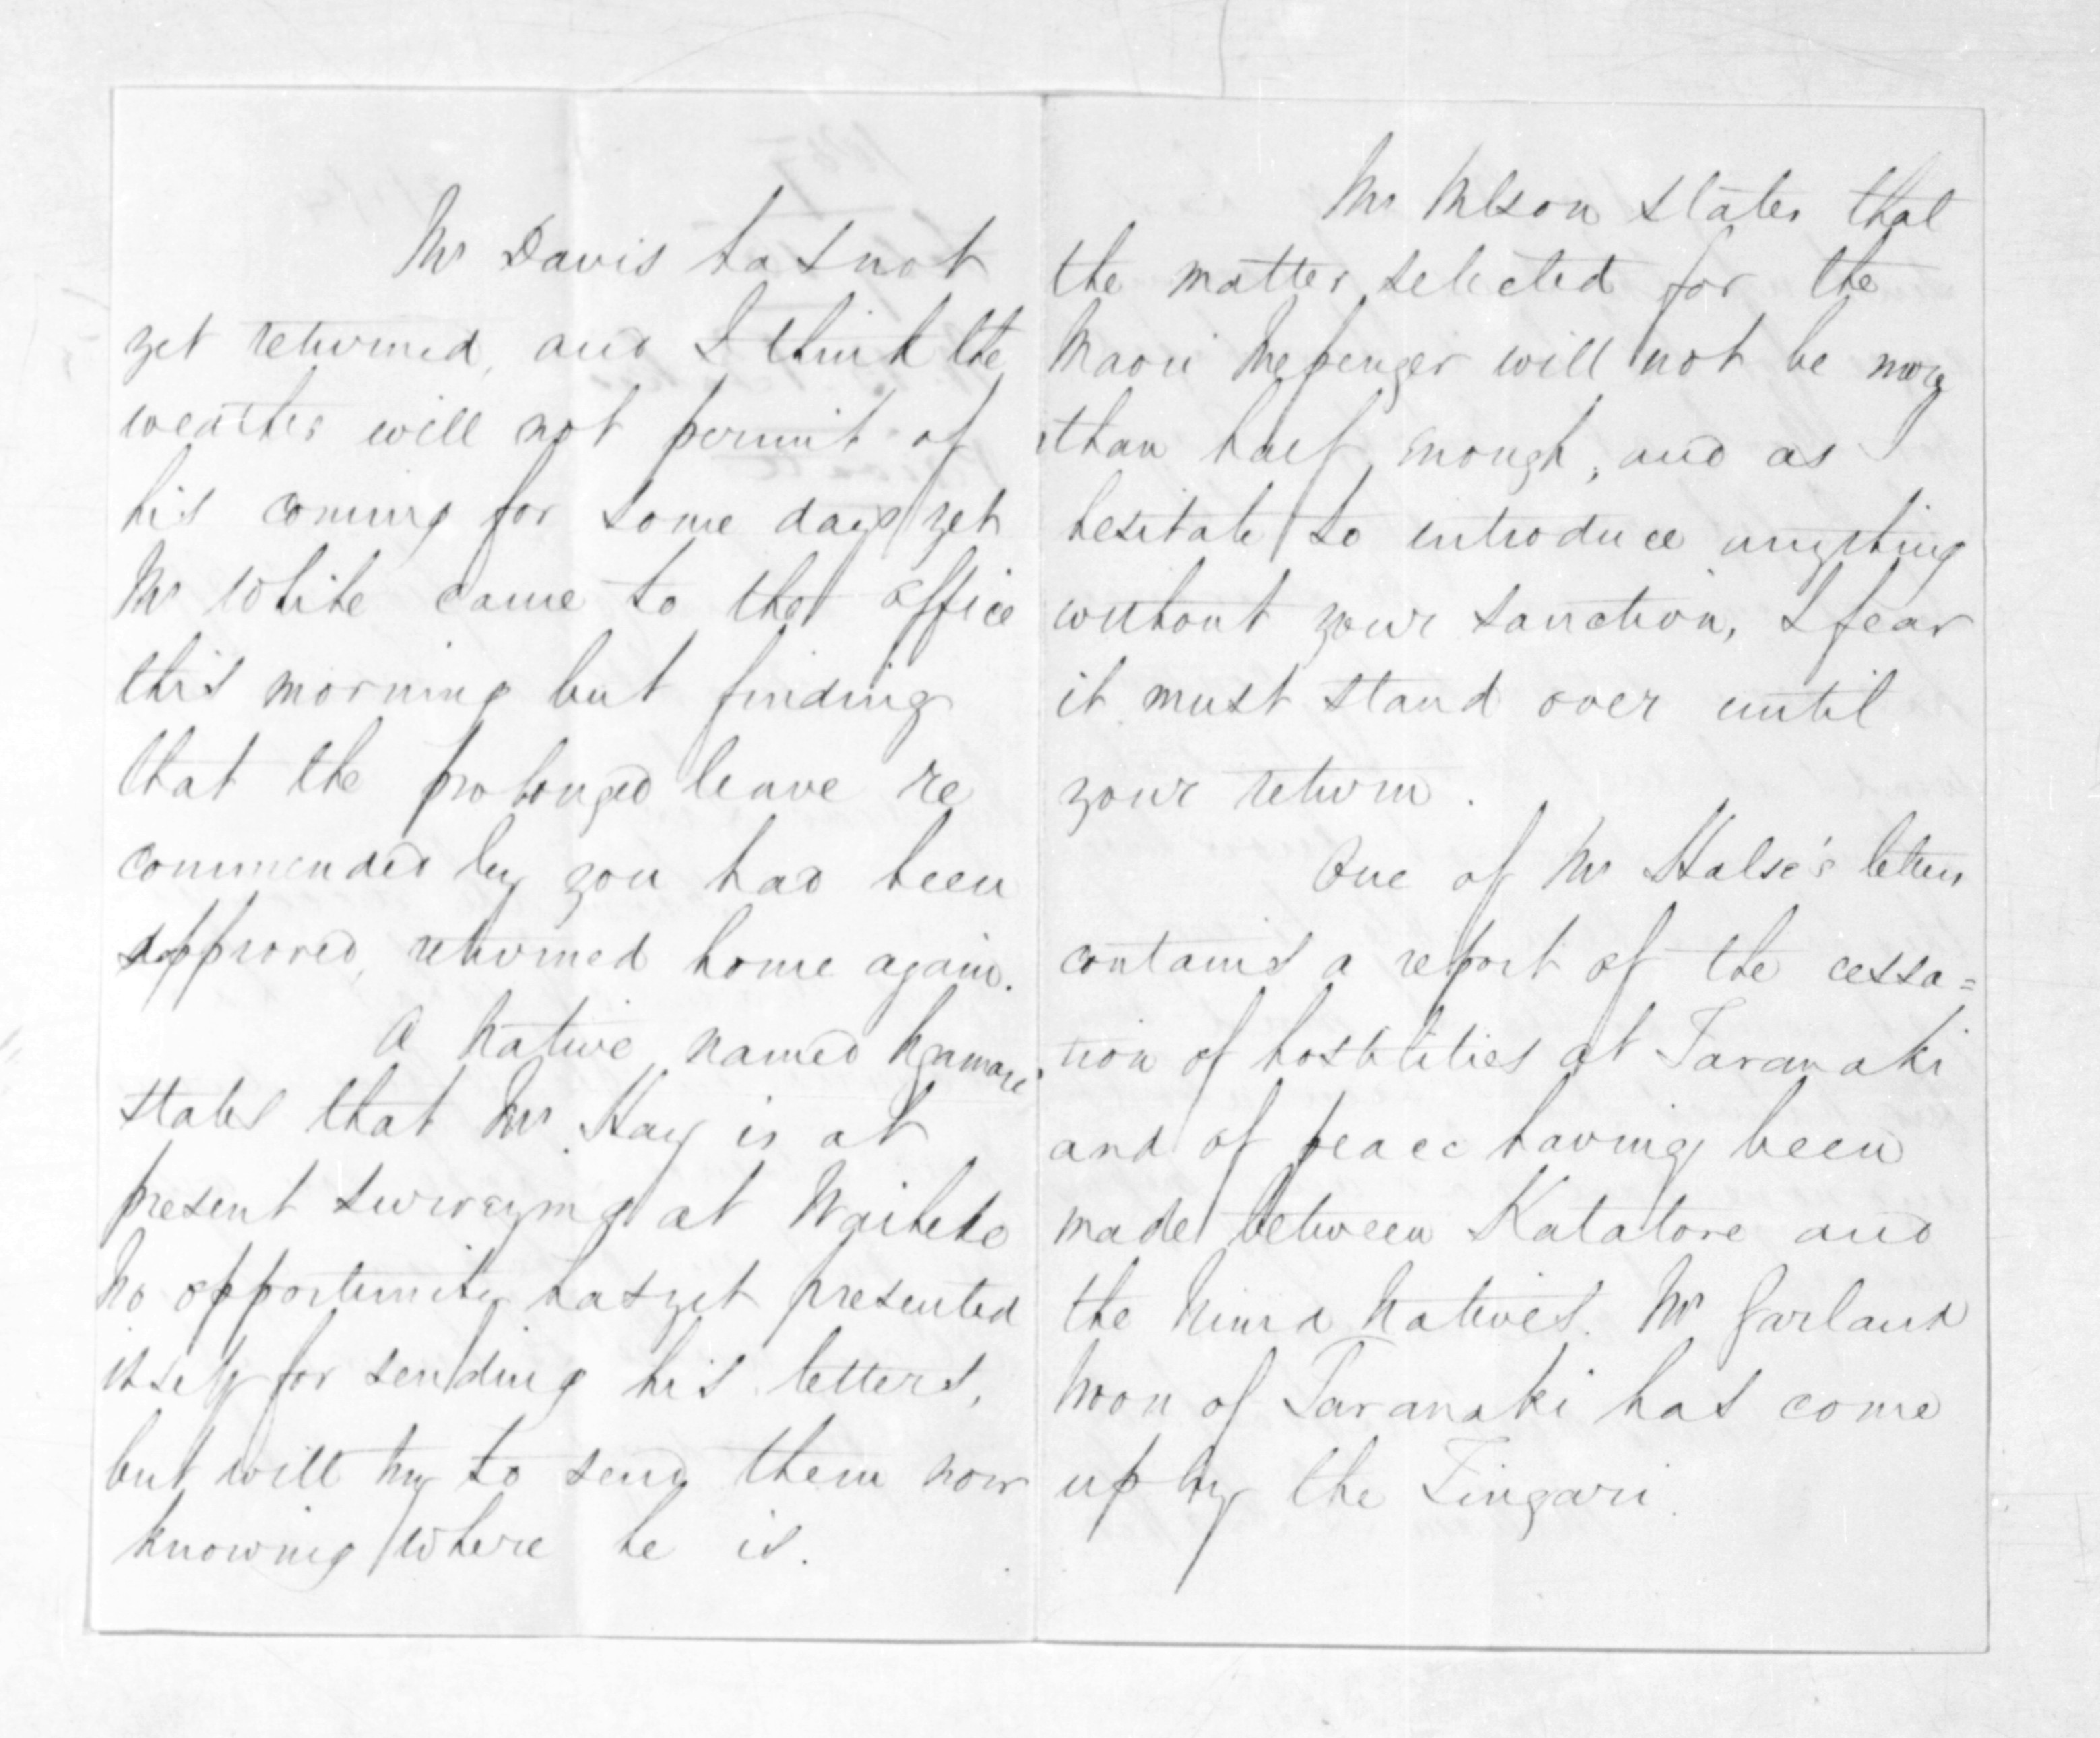 Mr Davis has not
yet returned, and I think the
weather will not permit of
his coming for some days yet
Mr White came to the office
this morning but finding
that the prolonged leave re
commended by you had been
approved, returned home again.
A Native named
states that Mr. Hay is at
present surveying at Waiheke
No opportunity has yet presented
itself for sending his letters,
but will try to send them now
knowing where he is.
Mr Nelson states that
the matter selected for the
Maori Messenger will not be more
than half enough, and as I
hesitate to introduce anything
without your sanction, I fear
it must stand over until
your return.
One of Mr Halse's letters
contains a report of the cessa=
tion of hostilities at Taranaki
and of peace having been
made between Katatore and
the Ninia Natives. Mr Garland
Woon of Taranaki has come
up by the Zingari.